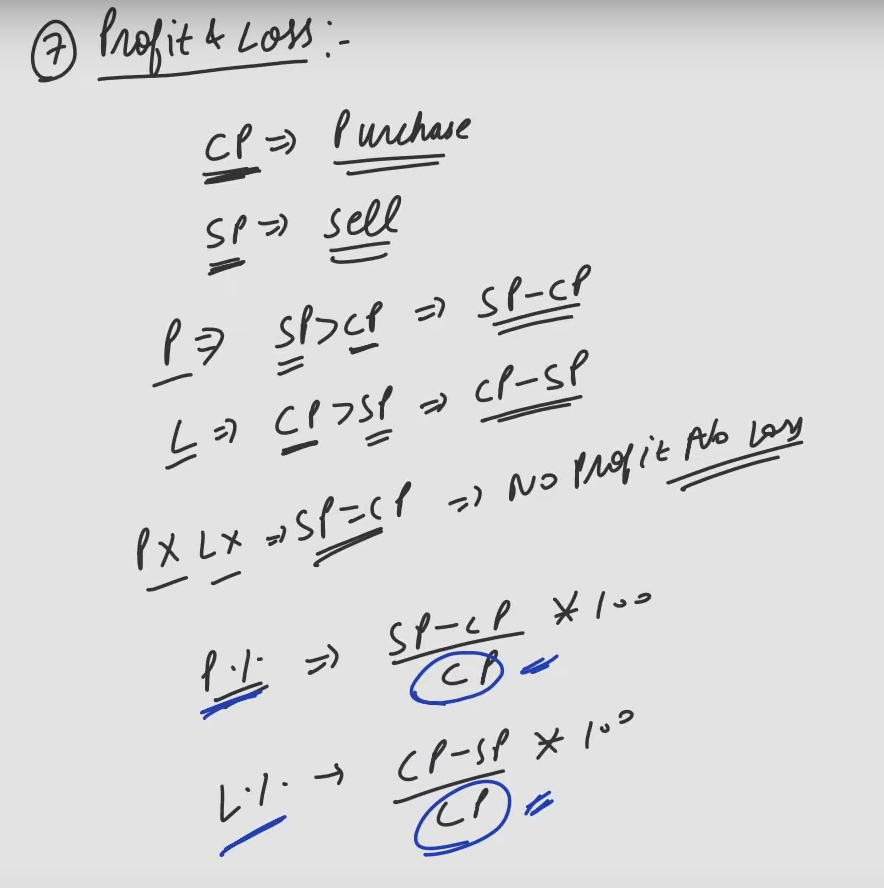 ⑦ Profit & Loss :-
CP ⇒ Purchase
SP ⇒ sell
P ⇒ SP>CP ⇒ SP-CP
L ⇒ CP>SP ⇒ CP-SP
PX LX ⇒ SP=CP ⇒ NO Profit No Loss
P.%. ⇒ SP-CP * 100
CP
L.%. → CP-SP * 100
CP